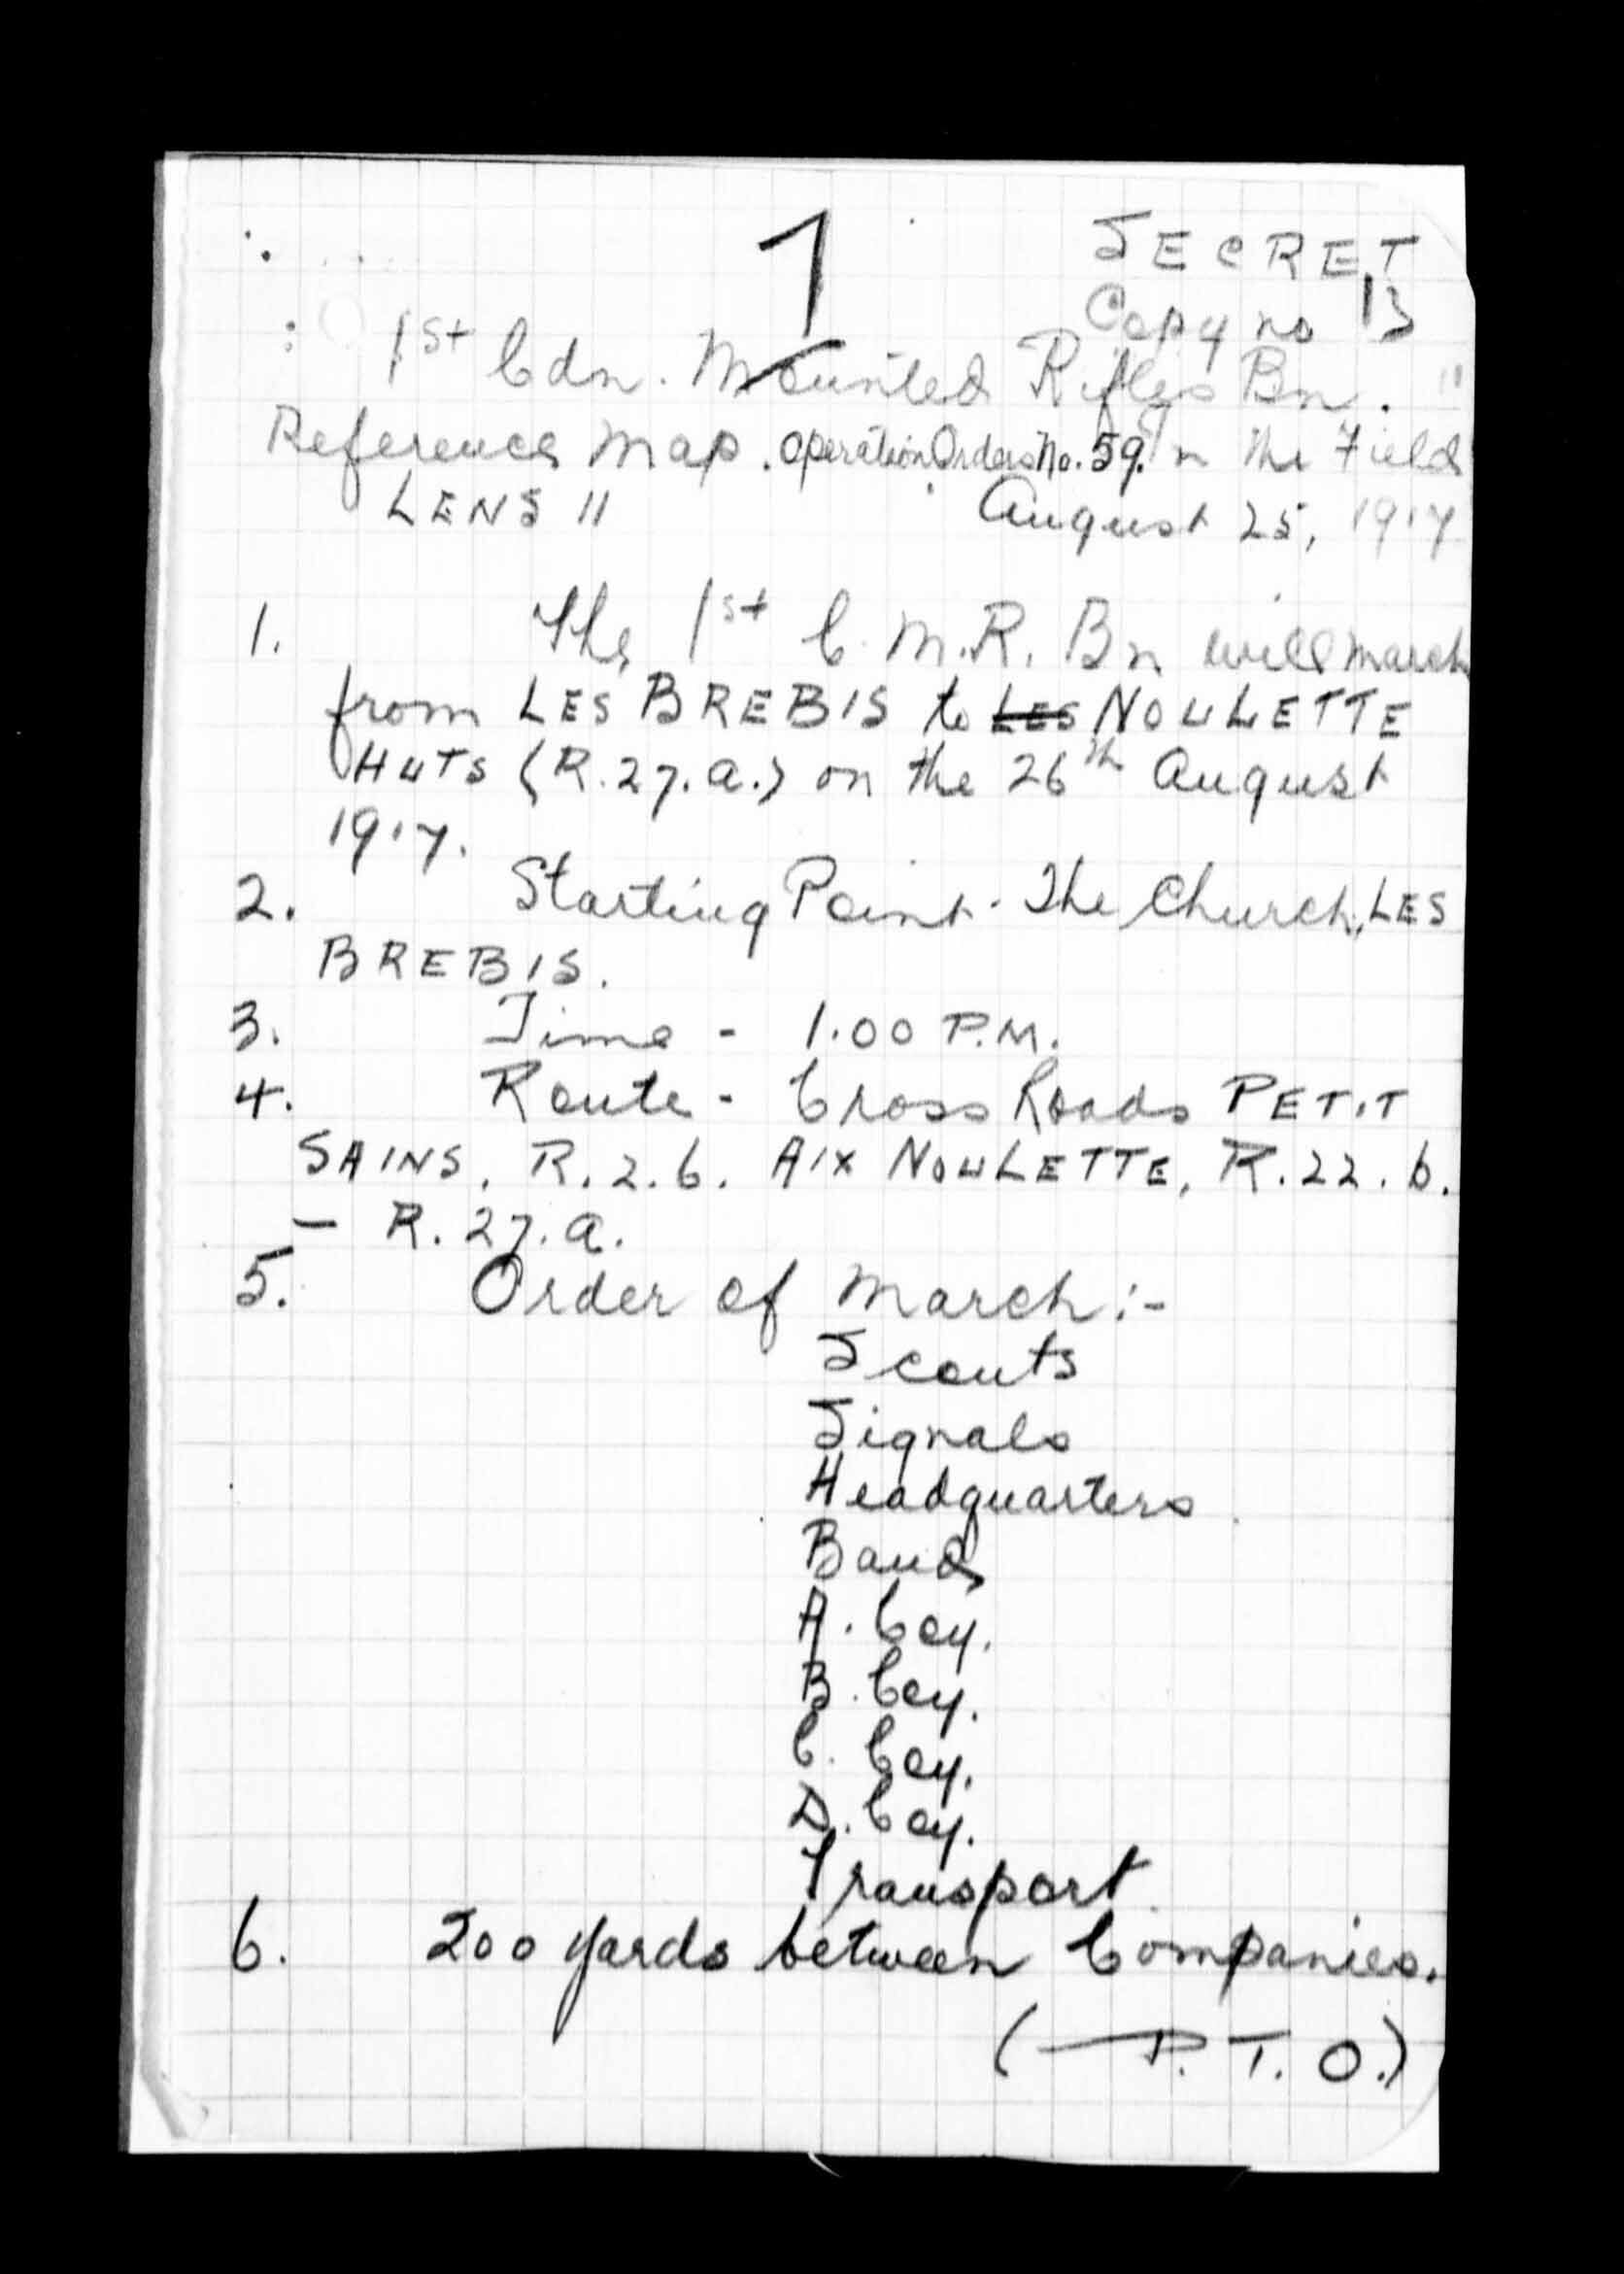 1
SECRET
Copy no 13
1st Cdn. Mounted Rifles Bn.
Reference Map. Operation Orders No. 59. In the Field
LENS 11 August 25, 1917
1. The 1st C.M.R. Bn will march
from LES BREBIS to LES NOULETTE
HUTS (R.27.a.) on the 26th August
1917.
2. Starting Point - The Church, LES
BREBIS.
3. Time - 1.00 P.M.
4. Route - Cross Roads PETIT
SAINS, R.2.b. AIX NOULETTE, R.22.b.
— R.27.a.
5. Order of March :-
Scouts
Signals
Headquarters
Band
A. Coy.
B. Coy.
C. Coy.
D. Coy.
Transport
6. 200 yards between Companies.
(— P.T.O.)